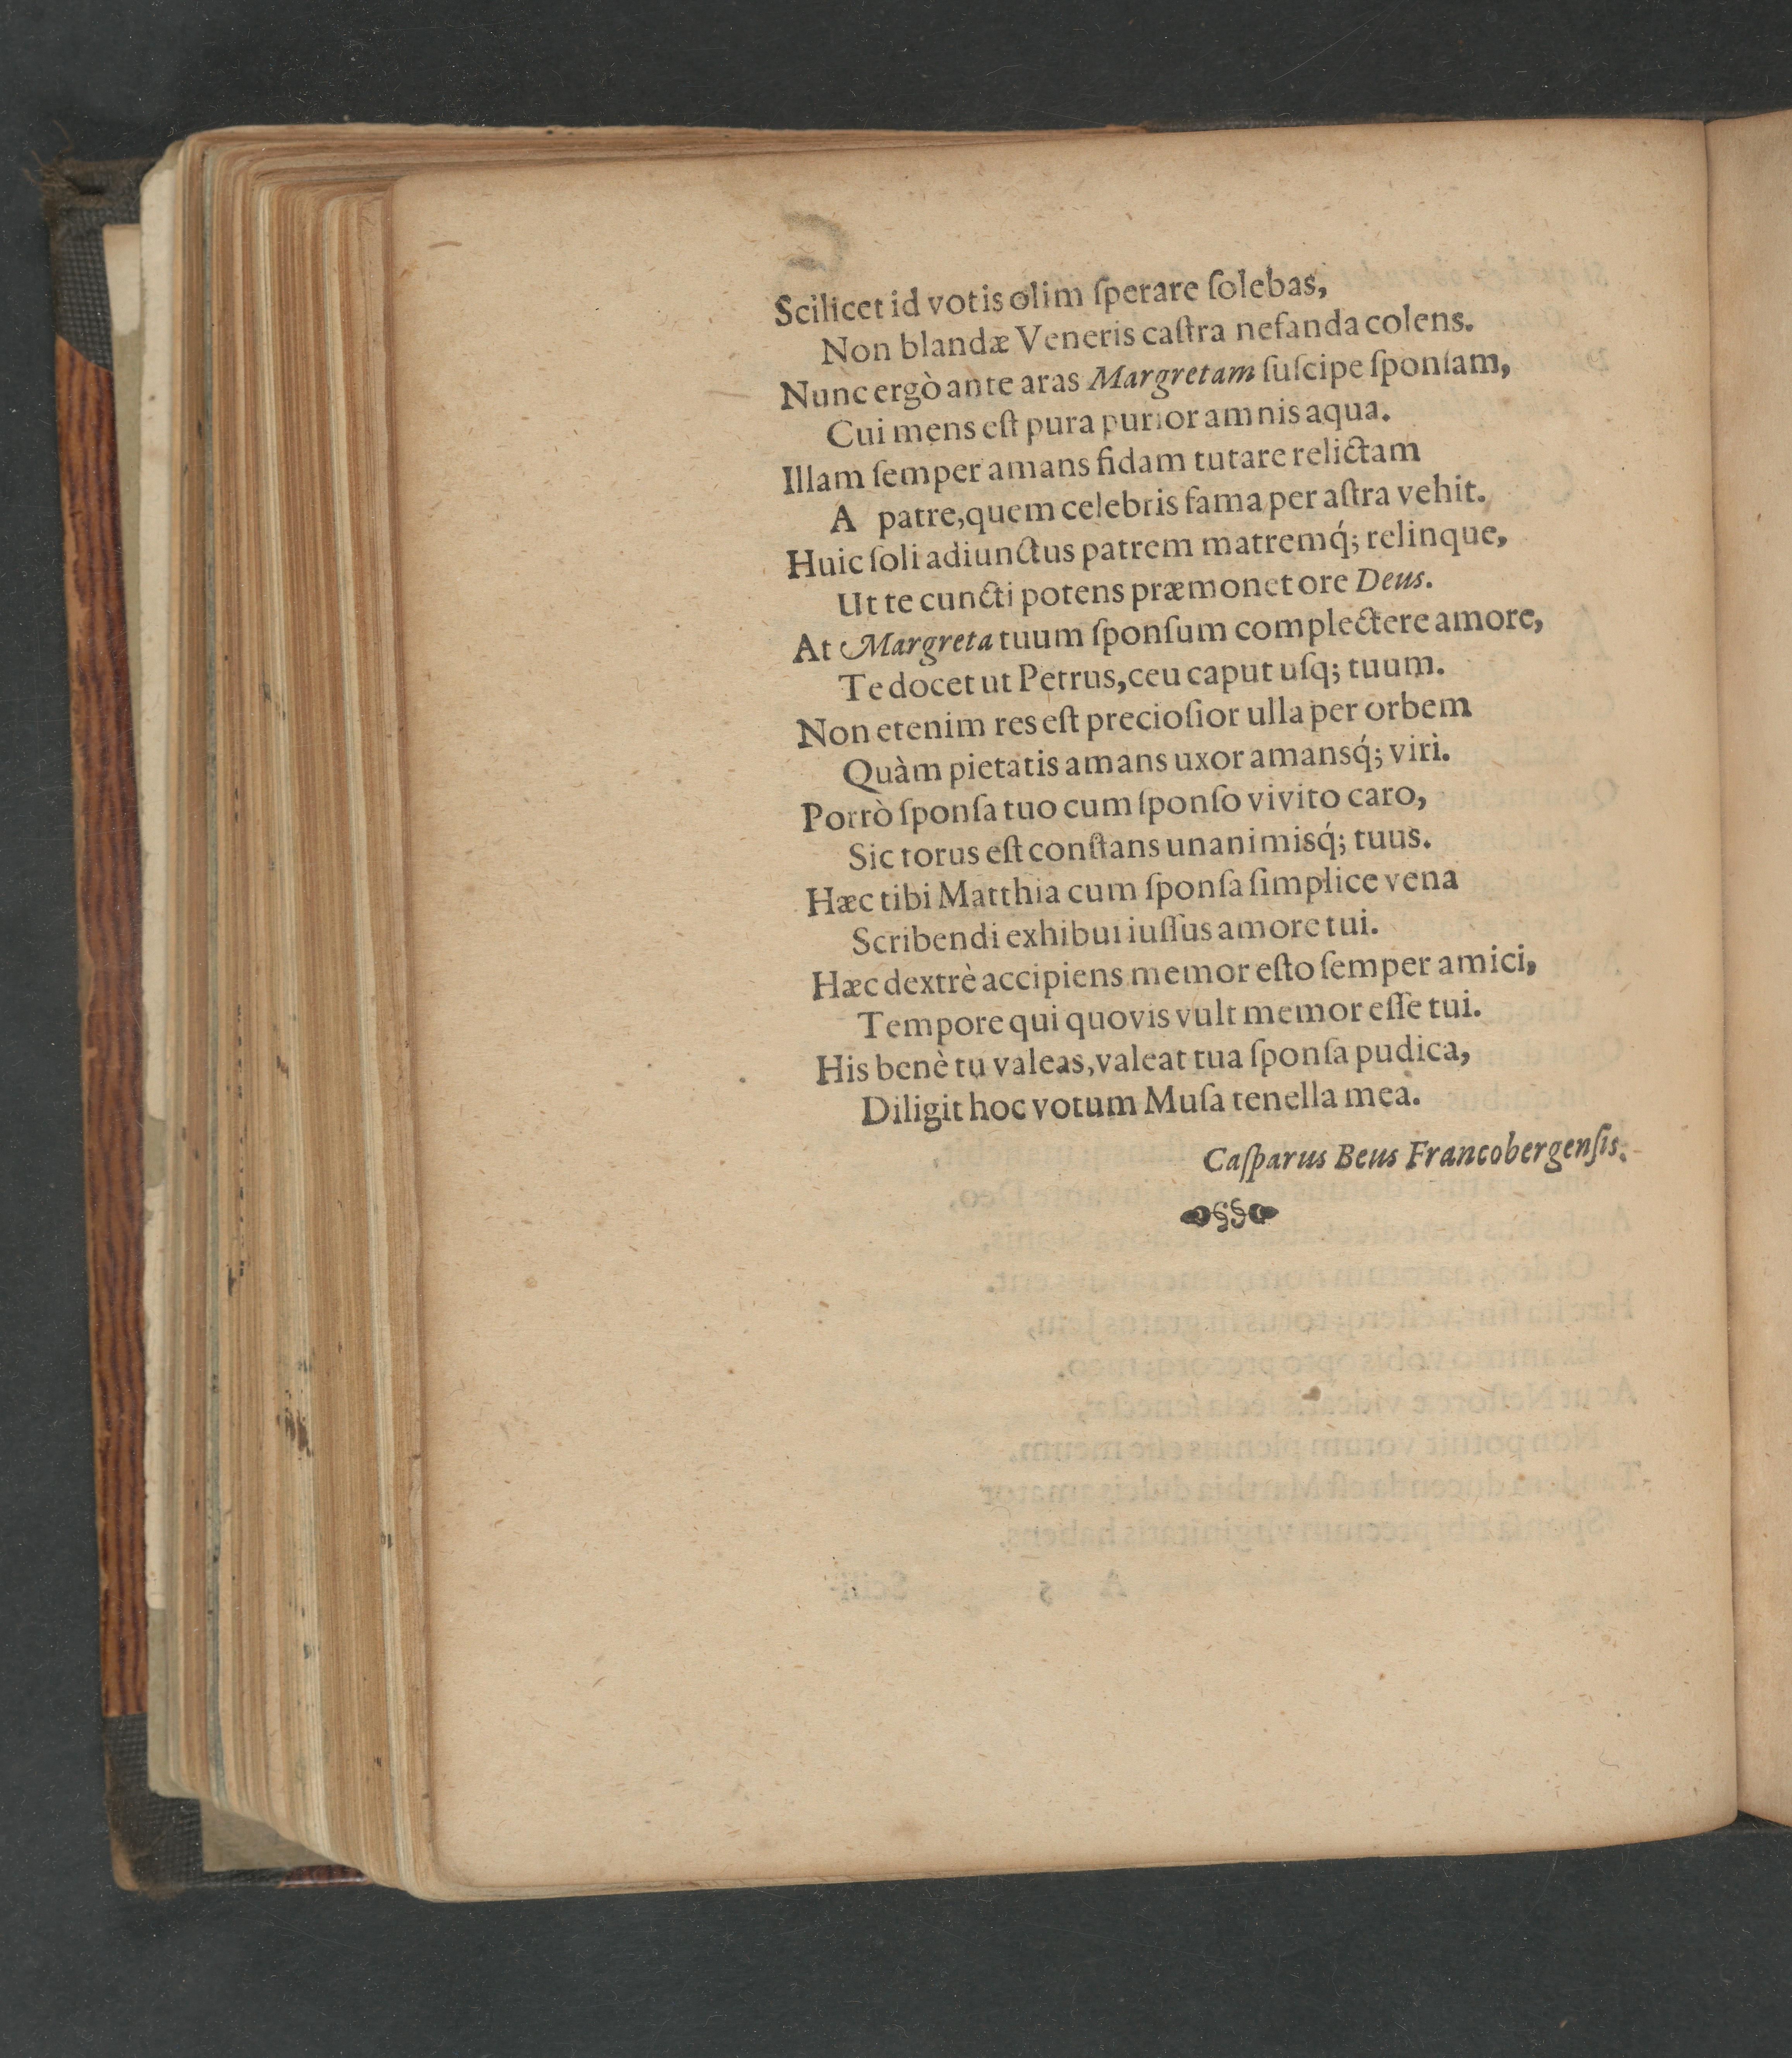 Scilicet id votis olim ſperare ſolebas,
Non blandæ Veneris caſtra nefanda colens.
Nunc ergò ante aras Margretam ſuſcipe ſponſam,
Cui mens eſt pura purior amnis aqua.
Illam ſemper amans fidam tutare relictam
A patre, quem celebris fama per aſtra vehit.
Huic ſoli adiunctus patrem matremq́; relinque,
Ut te cuncti potens præmonet ore Deus.
At Margreta tuum ſponſum complectere amore,
Te docet ut Petrus, ceu caput uſq; tuum.
Non etenim res eſt precioſior ulla per orbem
Quàm pietatis amans uxor amansq́; viri.
Porrò ſponſa tuo cum ſponſo vivito caro,
Sic torus eſt conſtans unanimisq́; tuus.
Hæc tibi Matthia cum ſponſa ſimplice vena
Scribendi exhibui iuſſus amore tui.
Hæc dextrè accipiens memor eſto ſemper amici,
Tempore qui quovis vult memor eſſe tui.
His benè tu valeas, valeat tua ſponſa pudica,
Diligit hoc votum Muſa tenella mea.
Caſparus Beus Francobergenſis.